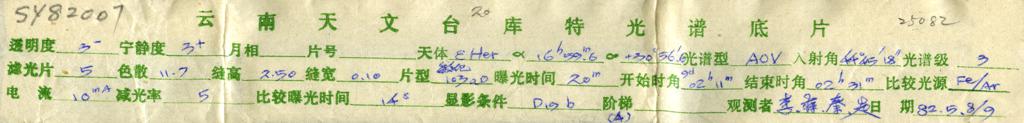 SY82007 云南天文台库特光谱底片 20 25082
透明度 3⁻ 宁静度 3⁺ 月相 片号 天体 ε Her α 16ʰ 59ᵐ.6 +30°56′.6 光谱型 A0V 入射角 44°45′18″ 光谱级 3
滤光片 5 色散 11.7 缝高 2.50 缝宽 0.10 片型 103aO 曝光时间 20ᵐ 开始时角 02ʰ 11ᵐ 结束时角 02ʰ 31ᵐ 比较光源 Fe/Ar
电流 10ᵐᴬ 减光率 5 比较曝光时间 14ˢ 显影条件 D19b 阶梯 (4) 观测者 李 日期 82.5.8/9